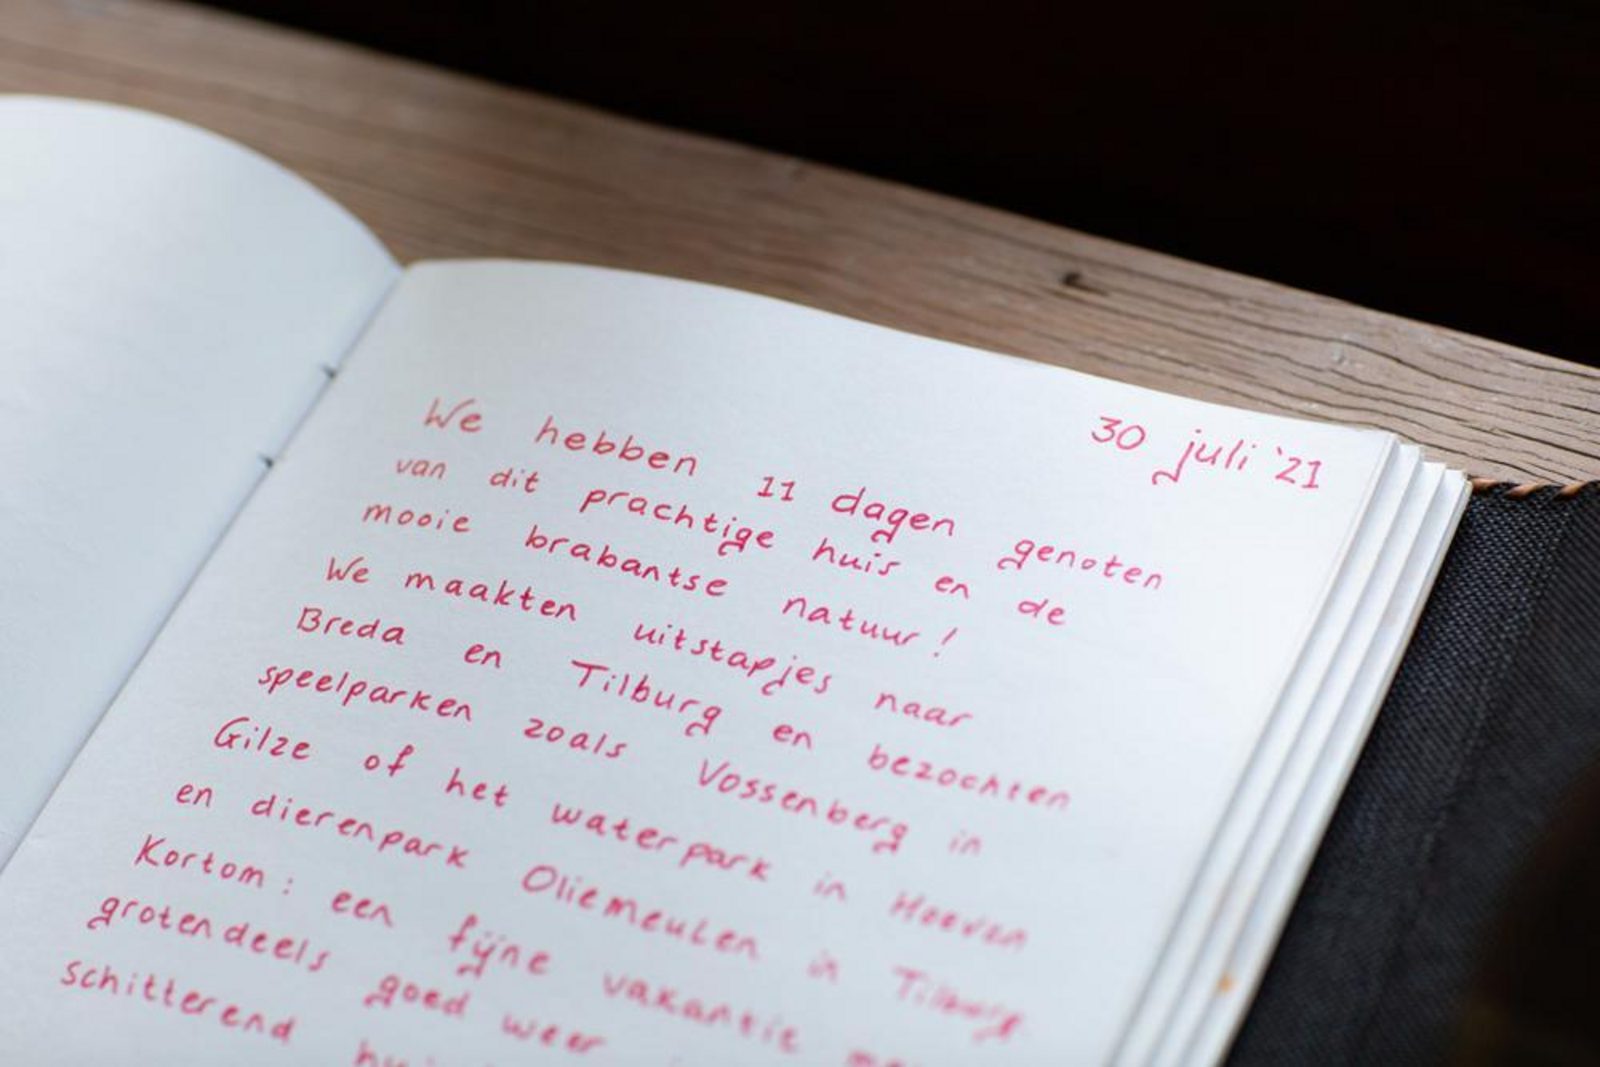 30 juli '21
We hebben 11 dagen genoten
van dit prachtige huis en de
mooie brabantse natuur!
We maakten uitstapjes naar
Breda en Tilburg en bezochten
speelparken zoals Vossenberg in
Gilze of het waterpark in Hoeven
en dierenpark Oliemeulen in Tilburg.
Kortom: een fijne vakantie
grotendeels goed weer
schitterend